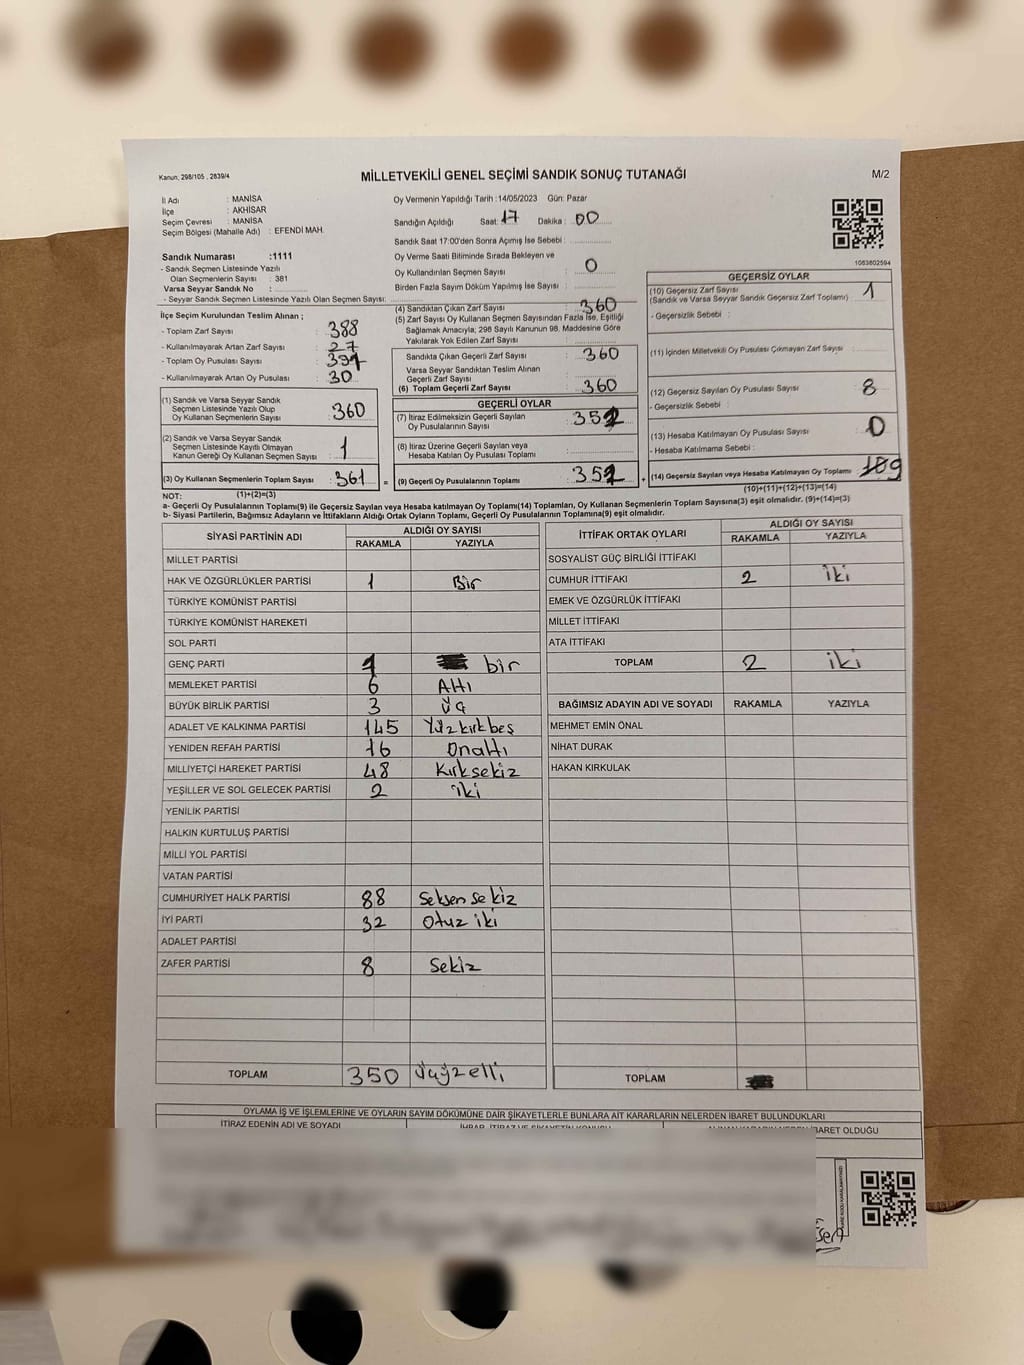 Kanun; 298/105 , 2839/4
MİLLETVEKİLİ GENEL SEÇİMİ SANDIK SONUÇ TUTANAĞI
M/2
İl Adı : MANİSA
İlçe : AKHİSAR
Seçim Çevresi : MANİSA
Seçim Bölgesi (Mahalle Adı) : EFENDİ MAH.
Oy Vermenin Yapıldığı Tarih :14/05/2023 Gün: Pazar
Sandığın Açıldığı Saat: 17 Dakika : 00
Sandık Saat 17:00'den Sonra Açımış İse Sebebi :
Oy Verme Saati Bitiminde Sırada Bekleyen ve
Oy Kullandırılan Seçmen Sayısı : 0
Birden Fazla Sayım Döküm Yapılmış İse Sayısı :
1063802594
Sandık Numarası :1111
- Sandık Seçmen Listesinde Yazılı
Olan Seçmenlerin Sayısı : 381
Varsa Seyyar Sandık No :
- Seyyar Sandık Seçmen Listesinde Yazılı Olan Seçmen Sayısı:
İlçe Seçim Kurulundan Teslim Alınan ;
- Toplam Zarf Sayısı : 388
- Kullanılmayarak Artan Zarf Sayısı : 27
- Toplam Oy Pusulası Sayısı :
- Kullanılmayarak Artan Oy Pusulası : 30
(1) Sandık ve Varsa Seyyar Sandık
Seçmen Listesinde Yazılı Olup
Oy Kullanan Seçmenlerin Sayısı : 360
(2) Sandık ve Varsa Seyyar Sandık
Seçmen Listesinde Kayıtlı Olmayan
Kanun Gereği Oy Kullanan Seçmen Sayısı : 1
(3) Oy Kullanan Seçmenlerin Toplam Sayısı : 361
(1)+(2)=(3)
(4) Sandıktan Çıkan Zarf Sayısı : 360
(5) Zarf Sayısı Oy Kullanan Seçmen Sayısından Fazla İse, Eşitliği
Sağlamak Amacıyla; 298 Sayılı Kanunun 98. Maddesine Göre
Yakılarak Yok Edilen Zarf Sayısı :
Sandıkta Çıkan Geçerli Zarf Sayısı : 360
Varsa Seyyar Sandıktan Teslim Alınan
Geçerli Zarf Sayısı :
(6) Toplam Geçerli Zarf Sayısı : 360
GEÇERLİ OYLAR
(7) İtiraz Edilmeksizin Geçerli Sayılan
Oy Pusulalarının Sayısı : 352
(8) İtiraz Üzerine Geçerli Sayılan veya
Hesaba Katılan Oy Pusulası Toplamı :
= (9) Geçerli Oy Pusulalarının Toplamı : 352
GEÇERSİZ OYLAR
(10) Geçersiz Zarf Sayısı : 1
(Sandık ve Varsa Seyyar Sandık Geçersiz Zarf Toplamı)
- Geçersizlik Sebebi :
(11) İçinden Milletvekili Oy Pusulası Çıkmayan Zarf Sayısı :
(12) Geçersiz Sayılan Oy Pusulası Sayısı : 8
- Geçersizlik Sebebi :
(13) Hesaba Katılmayan Oy Pusulası Sayısı : 0
- Hesaba Katılmama Sebebi :
+ (14) Geçersiz Sayılan veya Hesaba Katılmayan Oy Toplamı : 9
(10)+(11)+(12)+(13)=(14)
NOT:
a- Geçerli Oy Pusulalarının Toplamı(9) ile Geçersiz Sayılan veya Hesaba katılmayan Oy Toplamı(14) Toplamları, Oy Kullanan Seçmenlerin Toplam Sayısına(3) eşit olmalıdır. (9)+(14)=(3)
b- Siyasi Partilerin, Bağımsız Adayların ve İttifakların Aldığı Ortak Oyların Toplamı, Geçerli Oy Pusulalarının Toplamına(9) eşit olmalıdır.
SİYASİ PARTİNİN ADI ALDIĞI OY SAYISI
RAKAMLA YAZIYLA
MİLLET PARTİSİ
HAK VE ÖZGÜRLÜKLER PARTİSİ 1 Bir
TÜRKİYE KOMÜNİST PARTİSİ
TÜRKİYE KOMÜNİST HAREKETİ
SOL PARTİ
GENÇ PARTİ 1 bir
MEMLEKET PARTİSİ 6 Altı
BÜYÜK BİRLİK PARTİSİ 3 Üç
ADALET VE KALKINMA PARTİSİ 145 Yüzkırkbeş
YENİDEN REFAH PARTİSİ 16 Onaltı
MİLLİYETÇİ HAREKET PARTİSİ 48 Kırksekiz
YEŞİLLER VE SOL GELECEK PARTİSİ 2 iki
YENİLİK PARTİSİ
HALKIN KURTULUŞ PARTİSİ
MİLLİ YOL PARTİSİ
VATAN PARTİSİ
CUMHURİYET HALK PARTİSİ 88 Seksen sekiz
İYİ PARTİ 32 Otuz iki
ADALET PARTİSİ
ZAFER PARTİSİ 8 Sekiz
TOPLAM 350 üçyüzelli
İTTİFAK ORTAK OYLARI ALDIĞI OY SAYISI
RAKAMLA YAZIYLA
SOSYALİST GÜÇ BİRLİĞİ İTTİFAKI
CUMHUR İTTİFAKI 2 iki
EMEK VE ÖZGÜRLÜK İTTİFAKI
MİLLET İTTİFAKI
ATA İTTİFAKI
TOPLAM 2 iki
BAĞIMSIZ ADAYIN ADI VE SOYADI RAKAMLA YAZIYLA
MEHMET EMİN ÖNAL
NİHAT DURAK
HAKAN KIRKULAK
TOPLAM
OYLAMA İŞ VE İŞLEMLERİNE VE OYLARIN SAYIM DÖKÜMÜNE DAİR ŞİKAYETLERLE BUNLARA AİT KARARLARIN NELERDEN İBARET BULUNDUKLARI
İTİRAZ EDENİN ADI VE SOYADI İHBAR, İTİRAZ VE ŞİKAYETİN KONUSU İBARET OLDUĞU